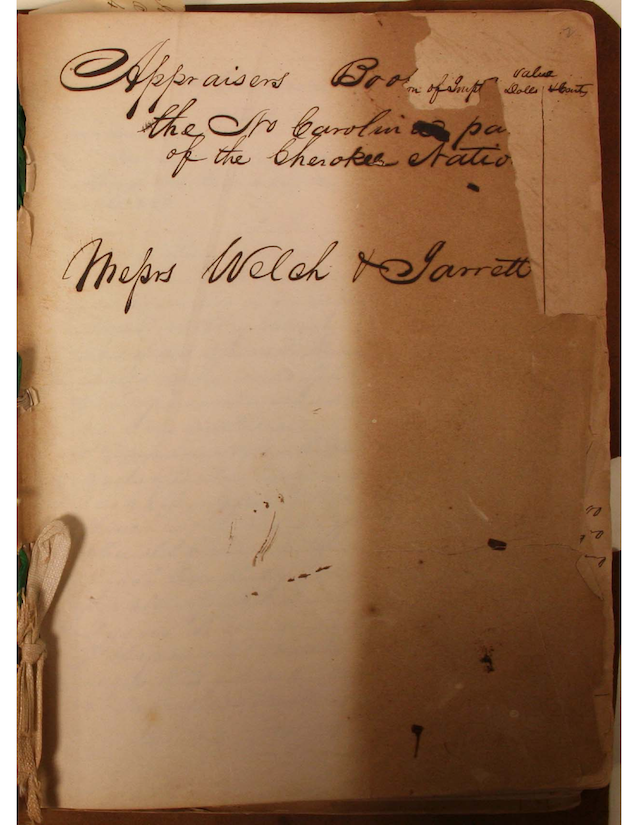 Appraisers Boo
n of Impt
Value
Dolls & Cents
the No Carolina pa
of the Cherokee Natio
Messrs Welch & Jarrett